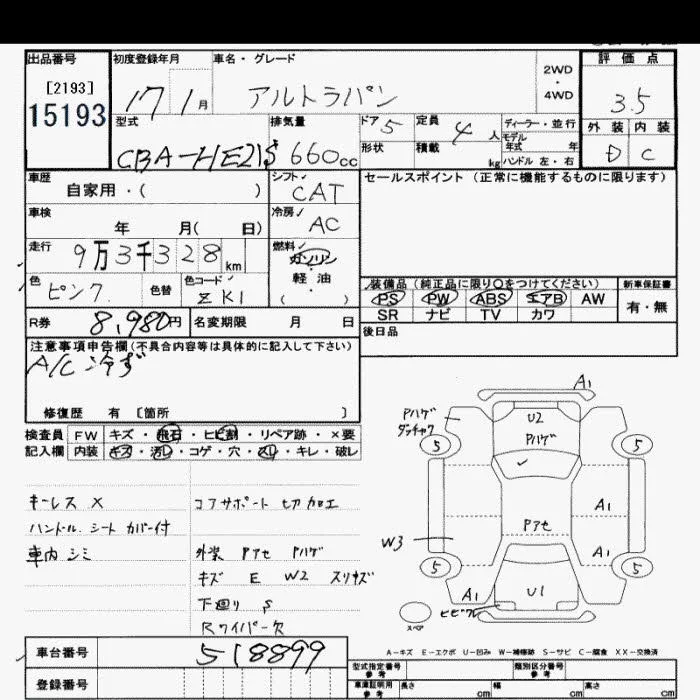 出品番号
初度登録年月
車名・グレード
2WD
・
4WD
評価点
[2193]
15193
17 1 月
アルトラパン
3.5
型式
排気量
ドア 5
定員 4 人
ディーラー・並行
モデル年式 年
外装
内装
CBA-HE21S
660cc
形状
積載 kg
ハンドル 左・右
D
C
車歴
自家用・( )
シフト
CAT
セールスポイント(正常に機能するものに限ります)
車検
年 月( 日)
冷房
AC
走行
9万3千328km
燃料
ガソリン
軽・油
( ・ )
色
ピンク
色替
色コード
ZK1
装備品(純正品に限り○をつけてください)
新車保証書
PS PW ABS エアB AW
有・無
SR ナビ TV カワ
R券 8,980円
名変期限 月 日
後日品
注意事項申告欄(不具合内容等は具体的に記入して下さい)
A/C 冷ず
修復歴 有 [箇所 ]
検査員
記入欄
FW キズ・飛石・ヒビ割・リペア跡・×要
内装 キズ・汚れ・コゲ・穴・スリ・キレ・破レ
キーレス X
ハンドル. シート カバー付
車内 シミ
コアサポート 切 加工
外装 Pアセ Pハゲ
キズ E W2 スリキズ
下廻り S
Rワイパー欠
A1
Pハゲ
タッチアク
U2
Pハゲ
5
5
A1
Pアセ
W3
A1
5
5
A1
U1
ヒビワレ
スペア
A-キズ E-エクボ U-凹み W-補修跡 S-サビ C-腐食 XX-交換済
車台番号
518899
登録番号
型式指定番号
参考
類別区分番号
参考
車庫証明用
参考
長さ cm
幅 cm
高さ cm